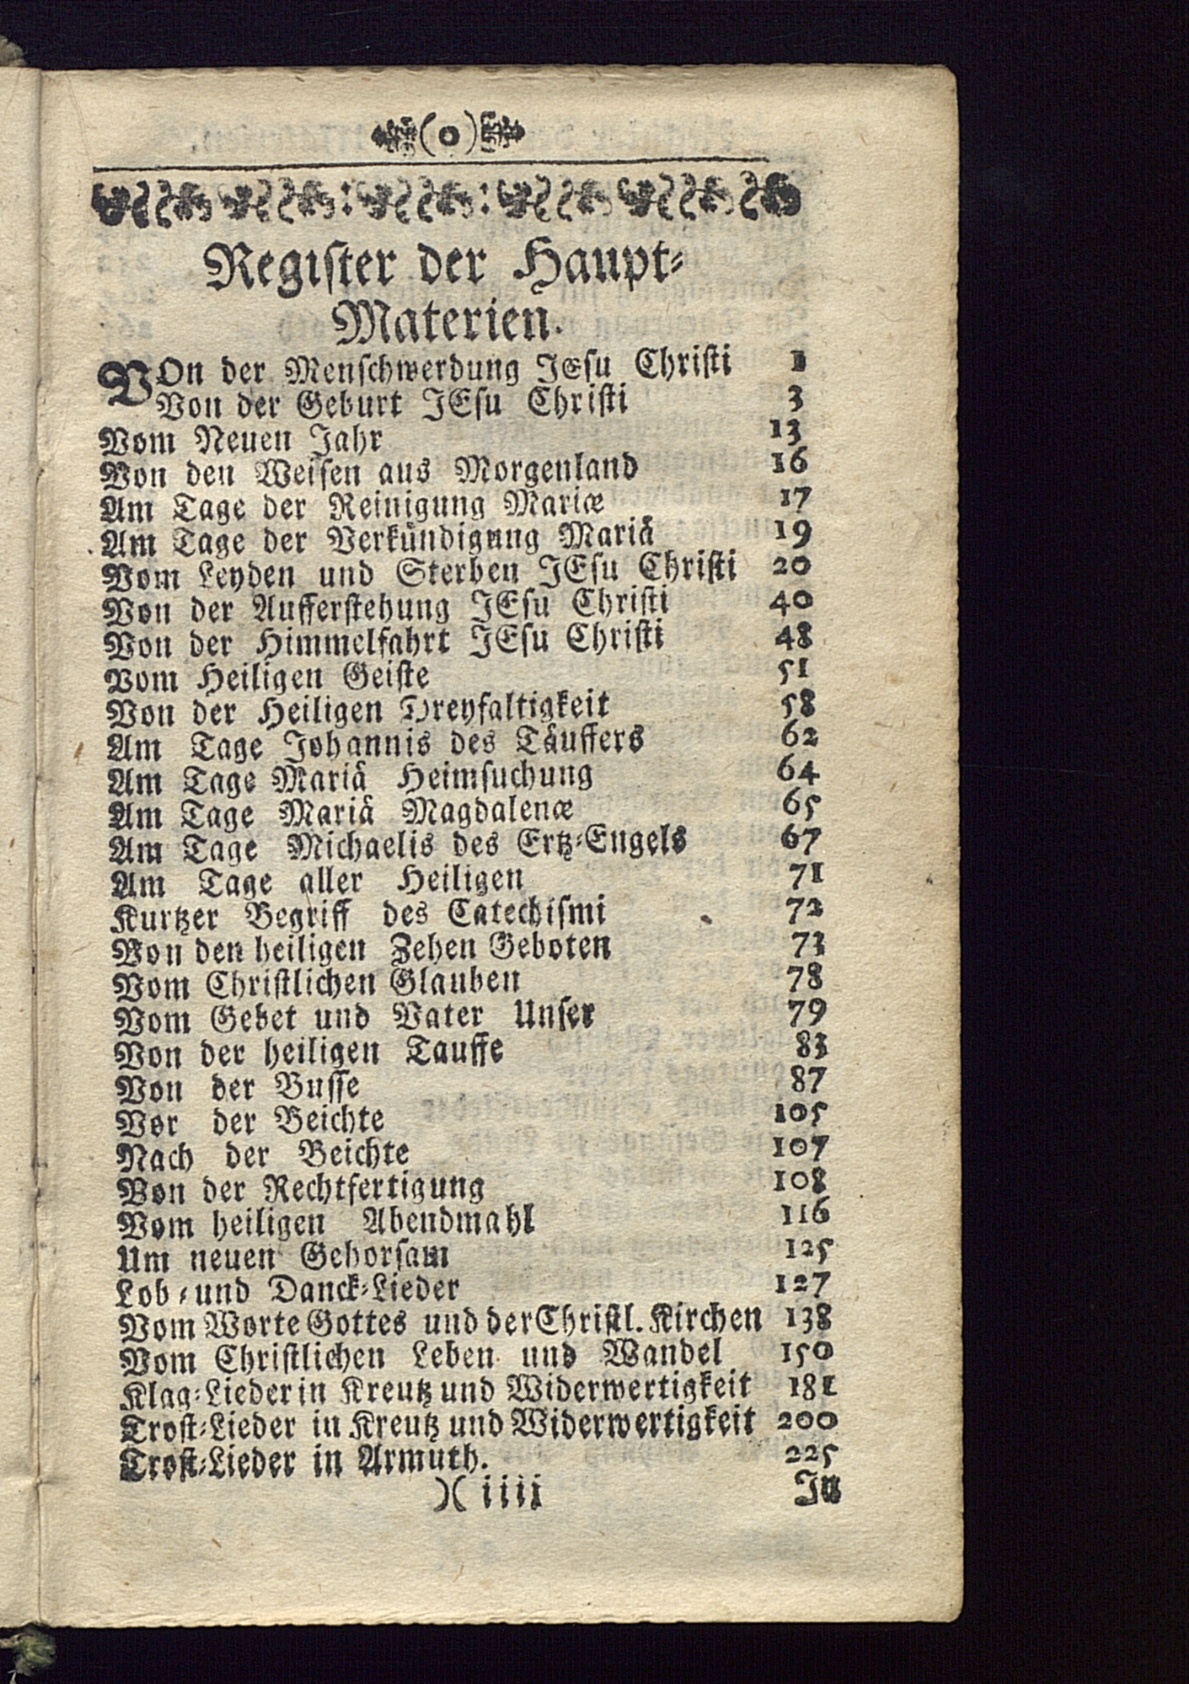 (o)
Register der Haupt-
Materien.
VOn der Menschwerdung JEsu Christi 1
Von der Geburt JEsu Christi 3
Vom Neuen Jahr 13
Von den Weisen aus Morgenland 16
Am Tage der Reinigung Mariæ 17
Am Tage der Verkündigung Mariä 19
Vom Leyden und Sterben JEsu Christi 20
Von der Aufferstehung JEsu Christi 40
Von der Himmelfahrt JEsu Christi 48
Vom Heiligen Geiste 51
Von der Heiligen Dreyfaltigkeit 58
Am Tage Johannis des Täuffers 62
Am Tage Mariä Heimsuchung 64
Am Tage Mariä Magdalenæ 65
Am Tage Michaelis des Ertz-Engels 67
Am Tage aller Heiligen 71
Kurtzer Begriff des Catechismi 72
Von den heiligen Zehen Geboten 73
Vom Christlichen Glauben 78
Vom Gebet und Vater Unser 79
Von der heiligen Tauffe 83
Von der Busse 87
Vor der Beichte 105
Nach der Beichte 107
Von der Rechtfertigung 108
Vom heiligen Abendmahl 116
Um neuen Gehorsam 125
Lob- und Danck-Lieder 127
Vom Worte Gottes und der Christl. Kirchen 138
Vom Christlichen Leben und Wandel 150
Klag-Lieder in Kreutz und Widerwertigkeit 181
Trost-Lieder in Kreutz und Widerwertigkeit 200
Trost-Lieder in Armuth. 225
)( iiii In